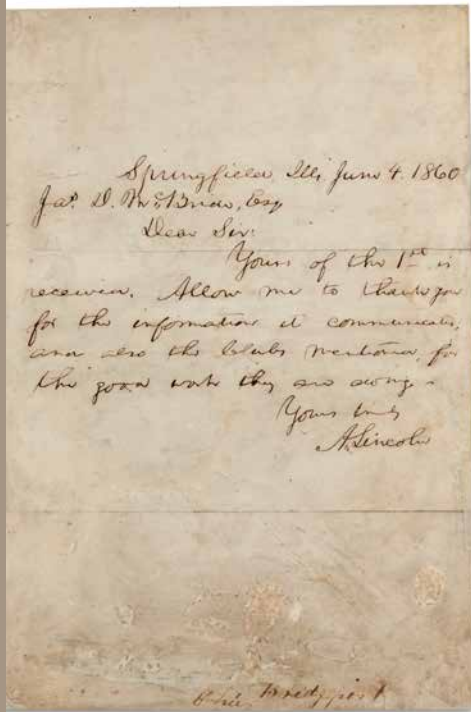 Springfield, Ills, June 4. 1860
Jas. D. McBride, Esq
Dear Sir:
Yours of the 1st is
received. Allow me to thank you
for the information it communicates,
and also the Clubs mentioned, for
the good work they are doing.
Yours truly
A. Lincoln
Bridgeport